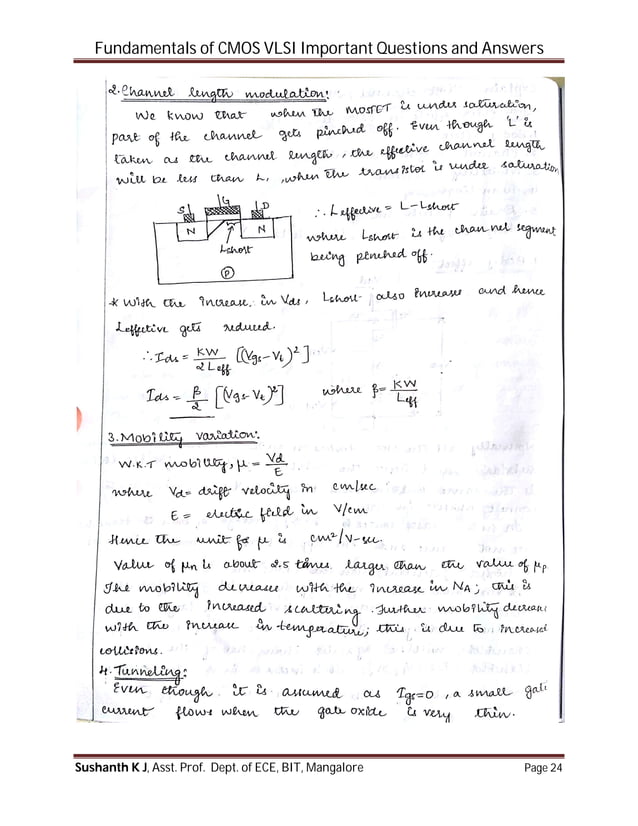 Fundamentals of CMOS VLSI Important Questions and Answers
2. Channel length modulation:
We know that when the MOSFET is under saturation,
part of the channel gets pinched off. Even though 'L' is
taken as the channel length, the effective channel length
will be less than L, when the transistor is under saturation
S G D
N N
Lshort
P
∴ Leffective = L-Lshort
where Lshort is the channel segment
being pinched off.
* With the increase in Vds, Lshort also increases and hence
Leffective gets reduced.
∴ Ids = KW/2Leff [(Vgs-Vt)²]
Ids = β/2 [(Vgs-Vt)²] where β = KW/Leff
3. Mobility variation:
W.K.T mobility, μ = Vd/E
where Vd = drift velocity in cm/sec
E = electric field in V/cm
Hence the unit for μ is cm²/V-sec.
Value of μn is about 2.5 times larger than the value of μp
The mobility decreases with the increase in NA; this is
due to the increased scattering. Further mobility decreases
with the increase in temperature; this is due to increased
collisions.
4. Tunneling:
Even though it is assumed as Igs=0, a small gate
current flows when the gate oxide is very thin.
Sushanth K J, Asst. Prof. Dept. of ECE, BIT, Mangalore Page 24